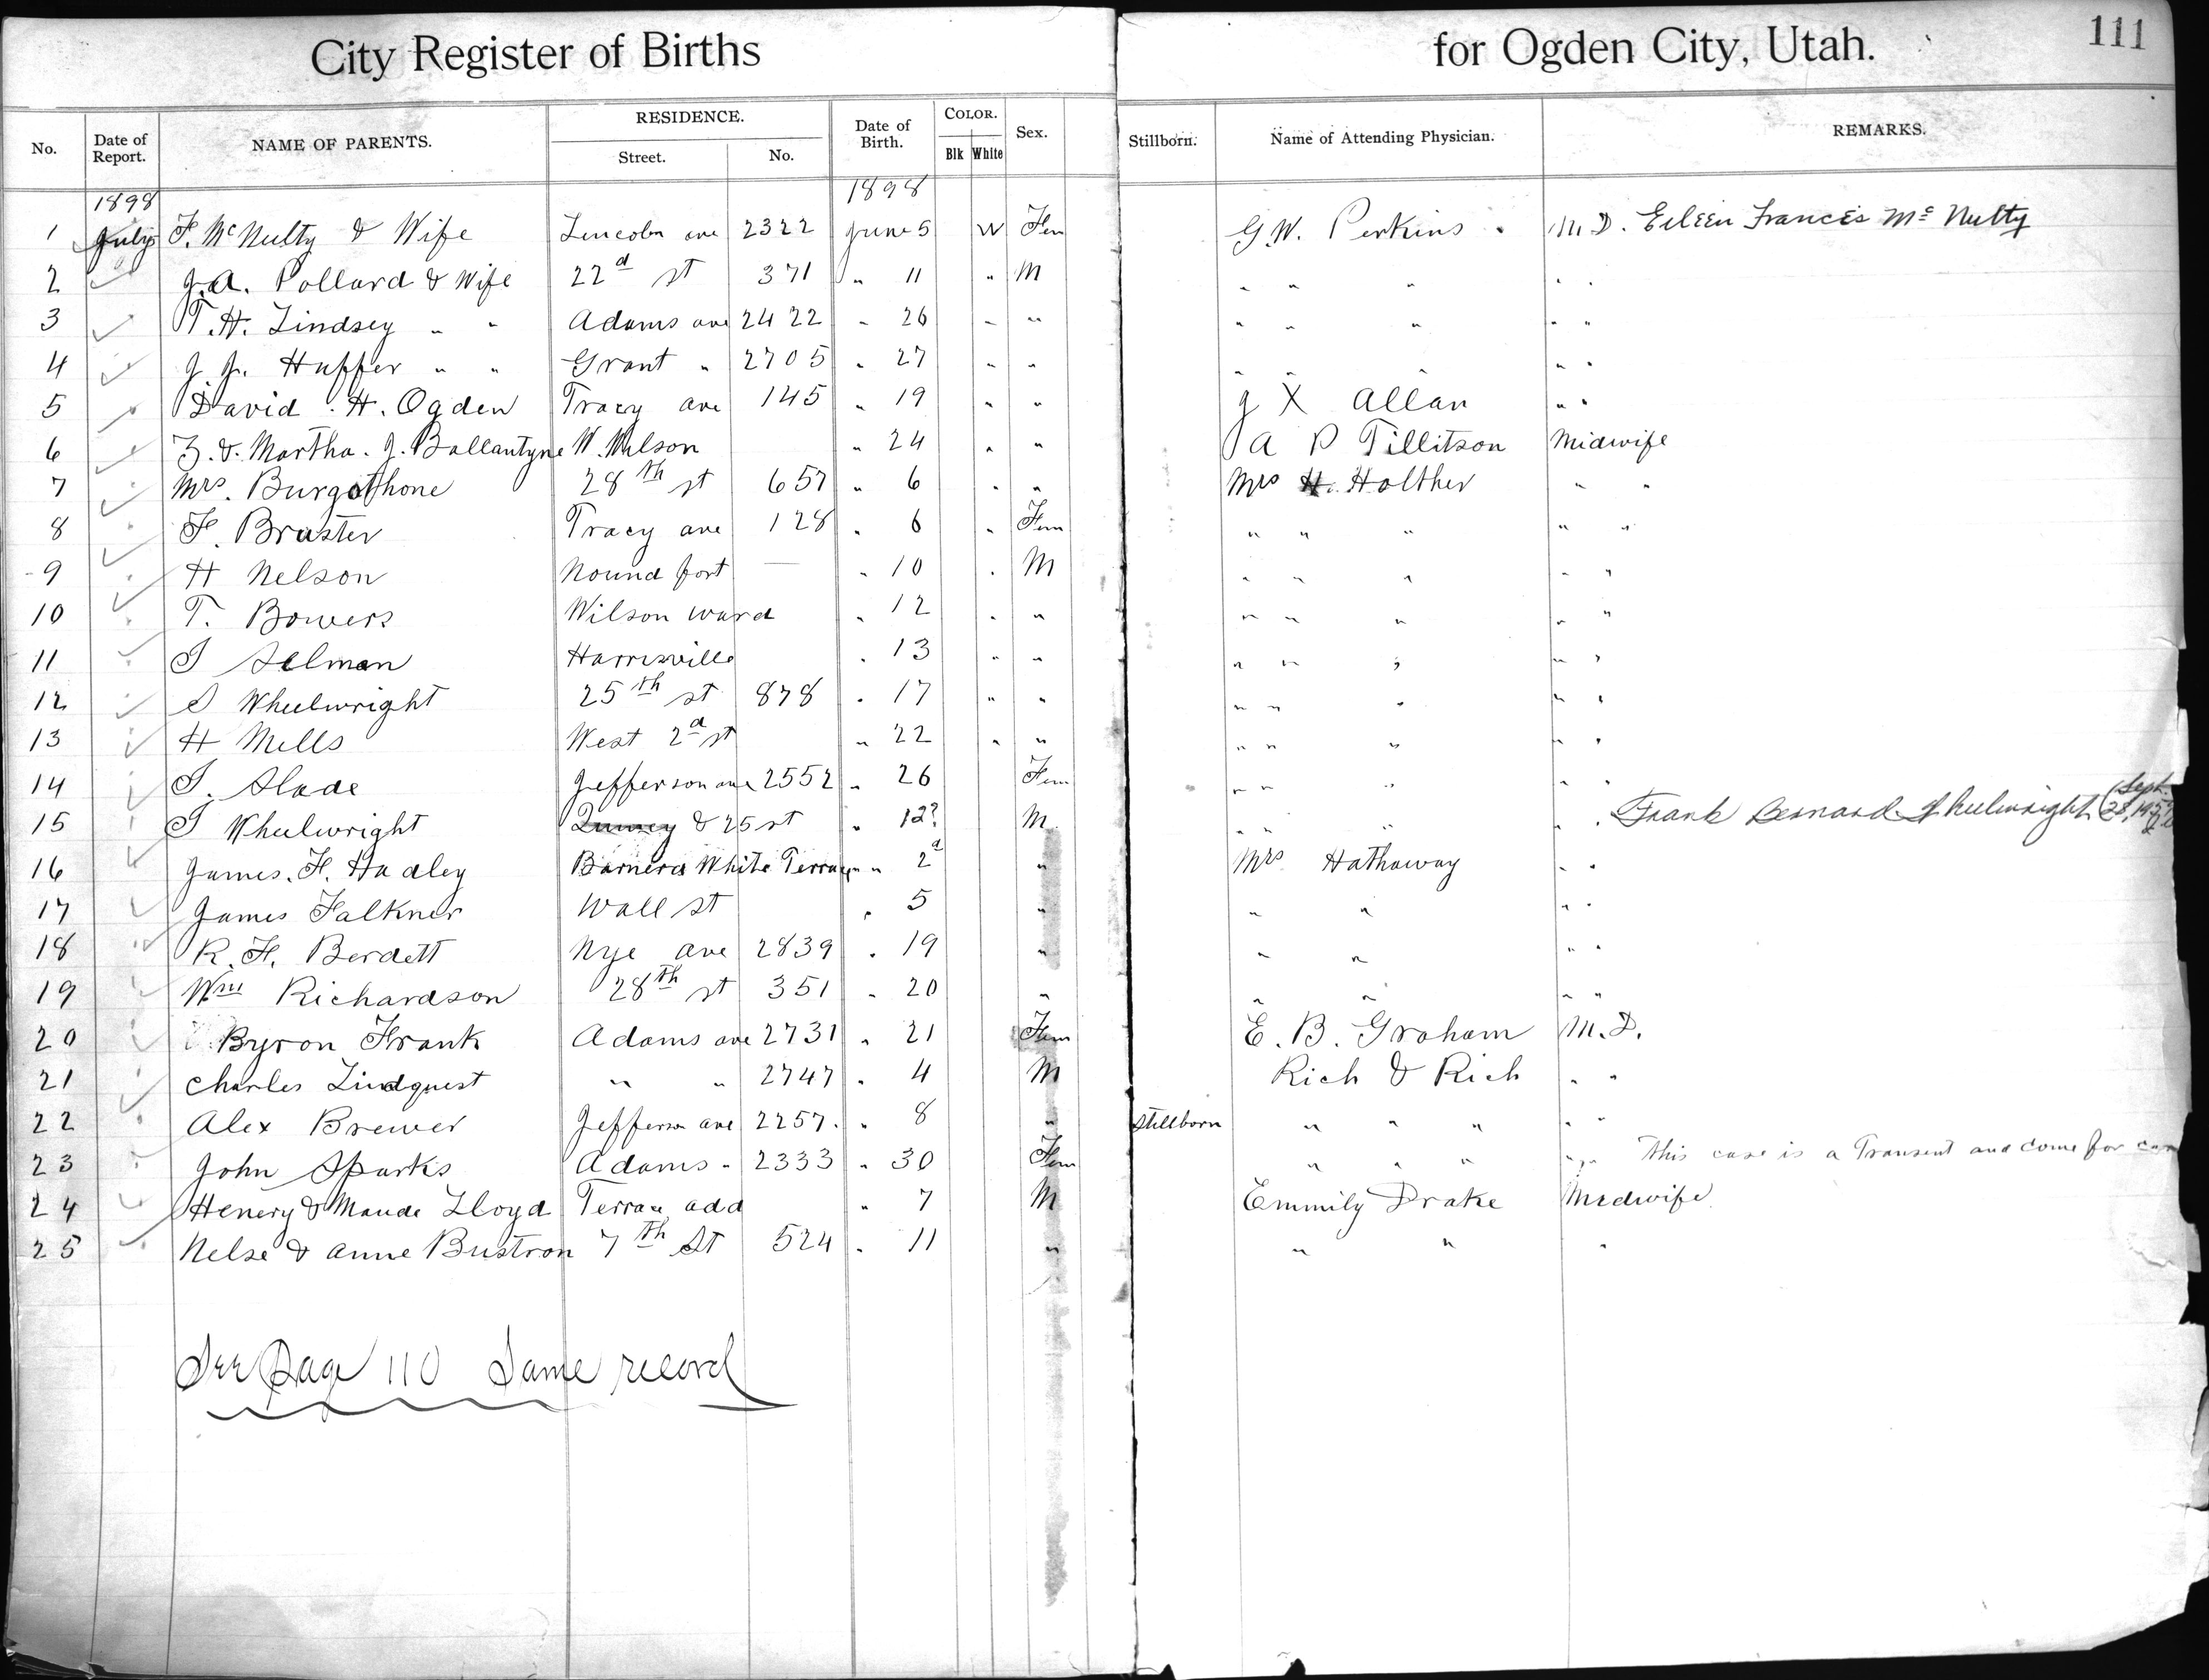 City Register of Births for Ogden City, Utah. 111
No. Date of Report. NAME OF PARENTS. RESIDENCE. Street. No. Date of Birth. COLOR. Blk White Sex. Stillborn. Name of Attending Physician. REMARKS.
1898 1898
1 July F. McNulty & Wife Lincoln ave 2322 June 5 W Fem G.W. Perkins M.D. Eileen Frances McNulty
2 " J.A. Pollard & Wife 22d st 371 " 11 " M " " " " "
3 T.H. Lindsey " " Adams ave 2422 " 26 " " " " " " "
4 J.J. Huffer " " Grant " 2705 " 27 " " " " " " "
5 " David H. Ogden Tracy ave 145 " 19 " " J X Allan " "
6 " Z. & Martha. J. Ballantyne W. Wilson " 24 " " A P Tillitson Midwife
7 " Mrs. Burgothone 28th st 657 " 6 " " Mrs H. Holther " "
8 " F. Braster Tracy ave 128 " 6 " Fem " " " " "
9 " H Nelson Mound fort — " 10 " M " " " " "
10 " T. Bowers Wilson ward " 12 " " " " " " "
11 " J Selman Harrisville " 13 " " " " " " "
12 " S Wheelwright 25th st 878 " 17 " " " " " " "
13 " H Mells West 2d st " 22 " " " " " " "
14 " J. Slade Jefferson ave 2552 " 26 Fem " " " " "
15 " J Wheelwright Quincy & 25 st " 12? M. " " " " " Frank Bernard Wheelwright (Sept.
16 James. F. Hadley Barnerd White Terrace " " 2d " Mrs Hathaway " "
17 " James Falkner Wall st " 5 " " " " "
18 " R. F. Berdett Nye ave 2839 " 19 " " " " "
19 " Wm Richardson 28th st 351 " 20 " " " " "
20 " Byron Frank Adams ave 2731 " 21 Fem E. B. Graham M.D.
21 " Charles Lindquest " " 2747 " 4 M Rich & Rich " "
22 " Alex Brewer Jefferson ave 2257. " 8 " Stillborn " " " " "
23 " John Sparks Adams " 2333 " 30 Fem " " " " " This case is a Transent and come for
24 " Henery & Maude Lloyd Terrace add " 7 M Emmily Drake Midwife.
25 " Nelse & Anne Bustron 7th St 524 " 11 " " " "
See Page 110 Same record